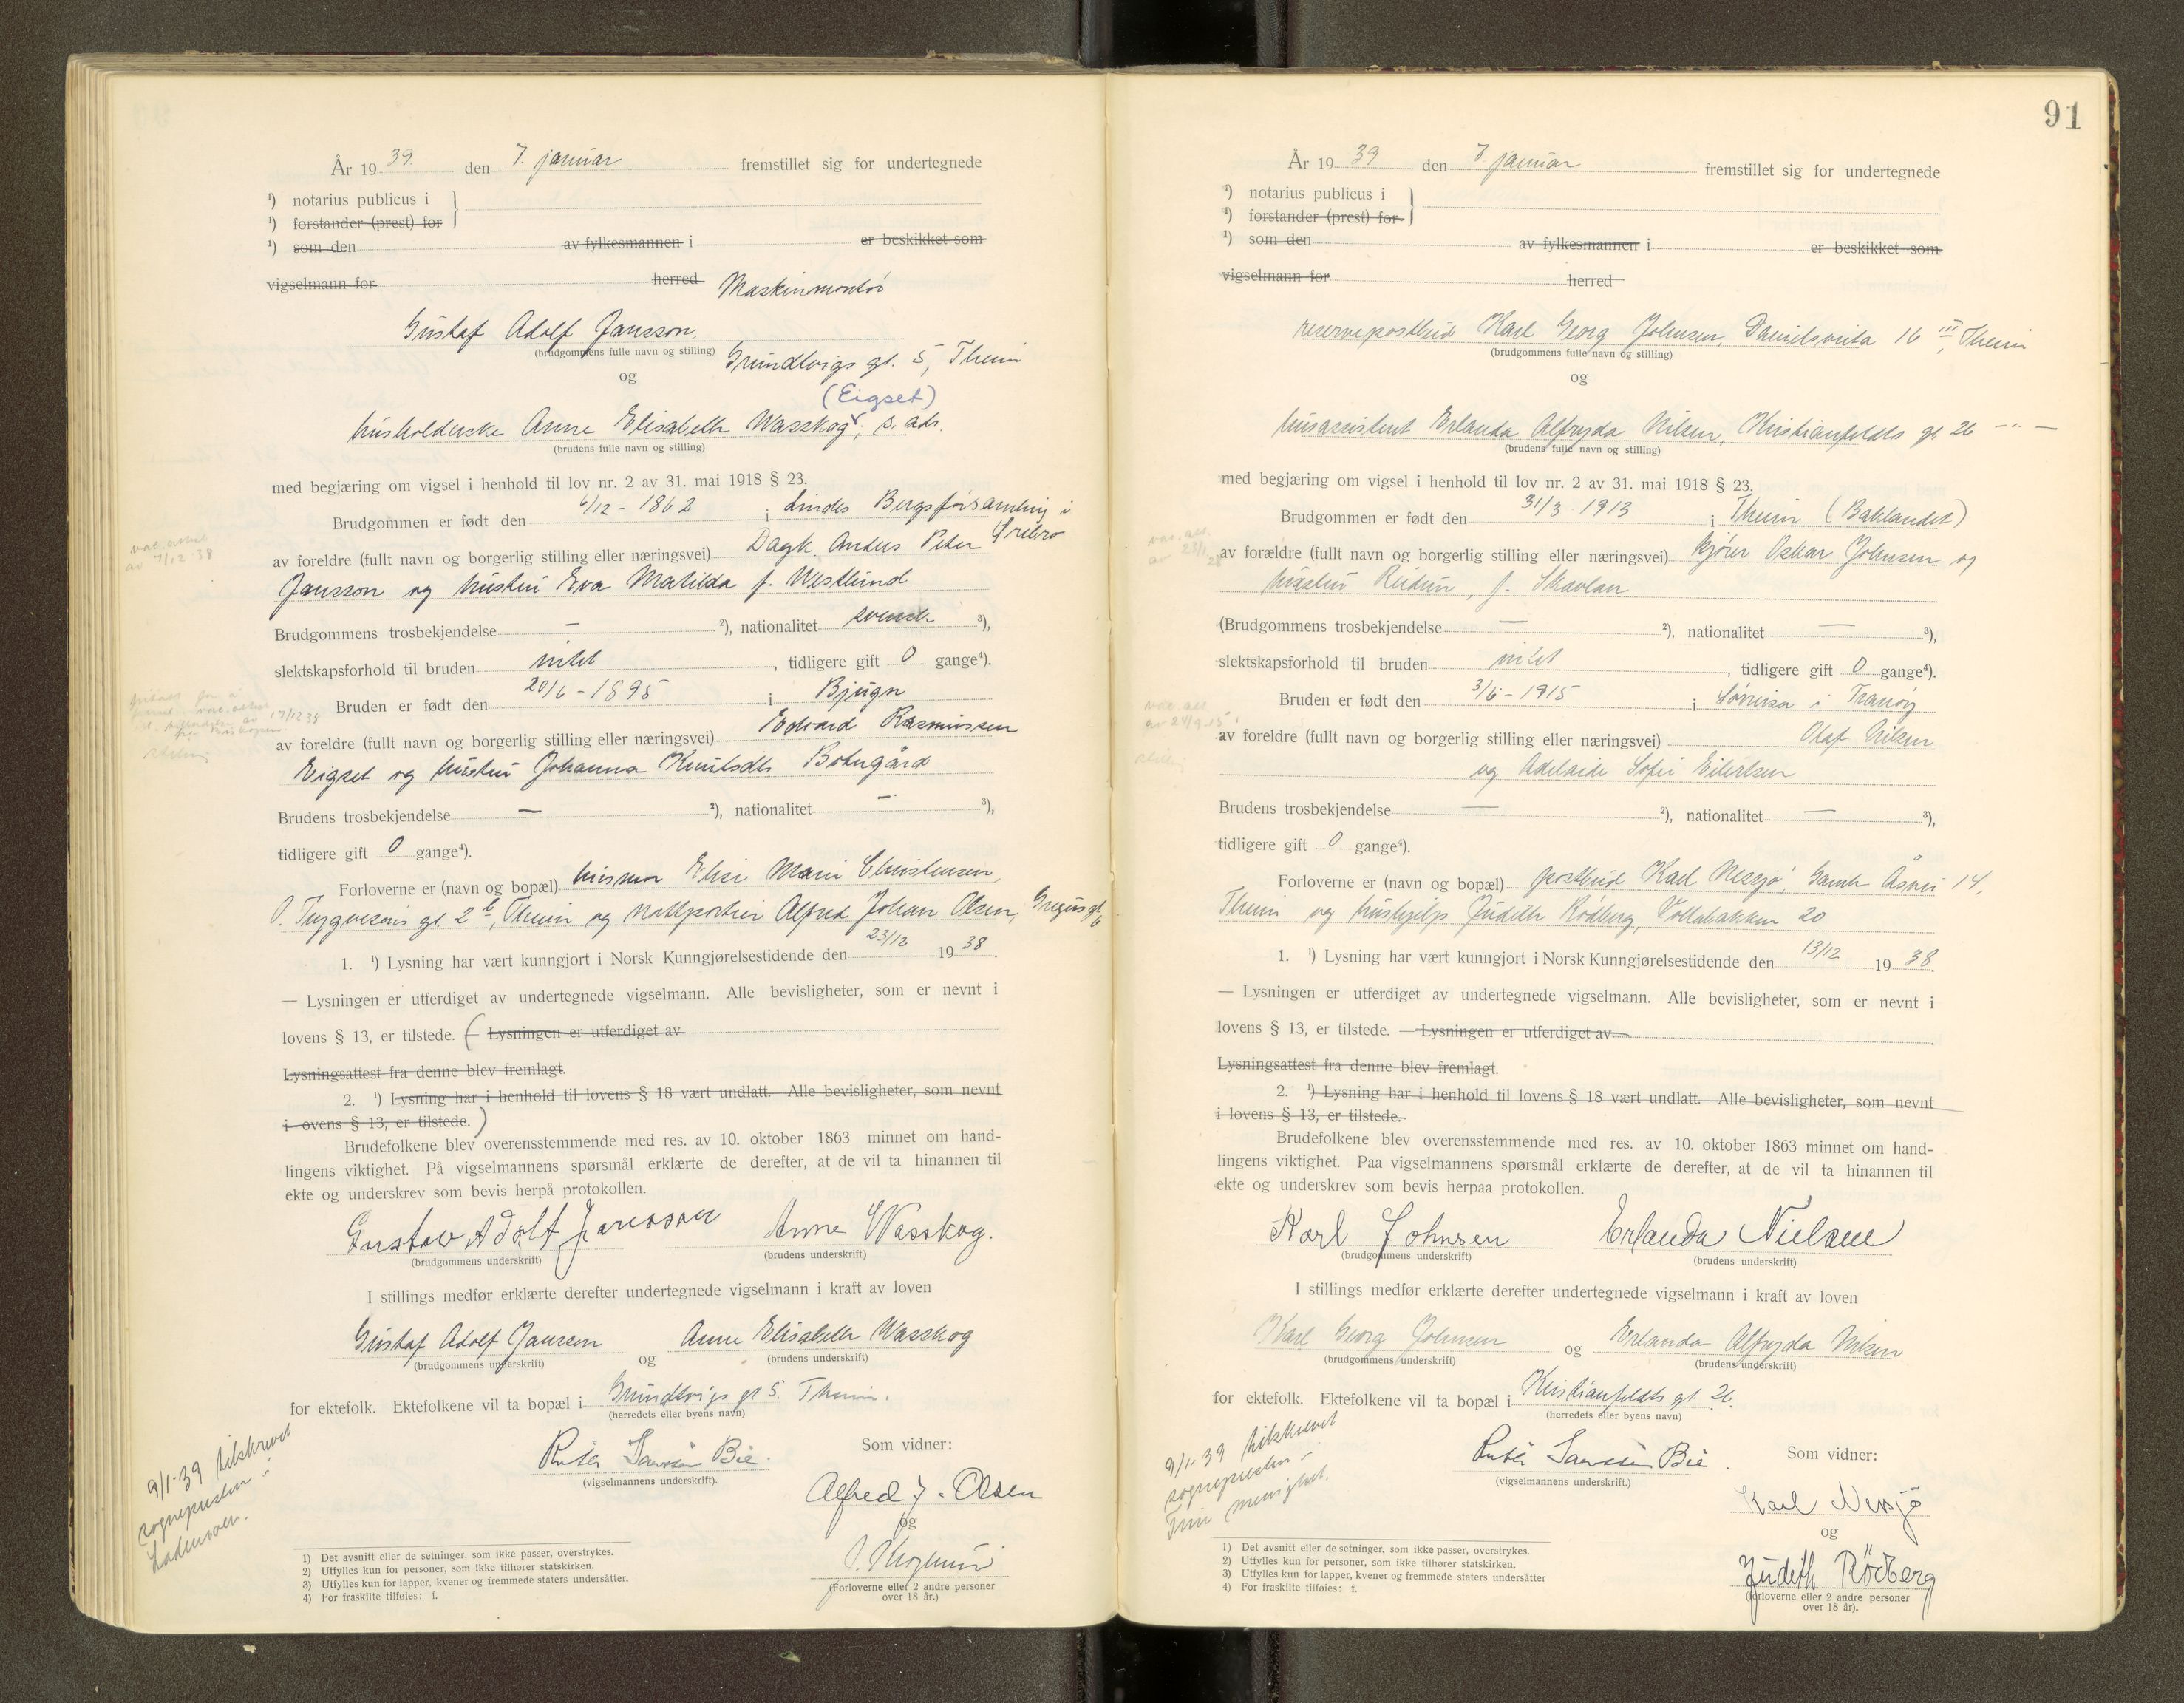 År 19 39. den 7. januar fremstillet sig for undertegnede
¹) notarius publicus i
¹) forstander (prest) for
¹) som den av fylkesmannen i er beskikket som
vigselmann for herred Maskinmontør
Gustaf Adolf Jansson,
(brudgommens fulle navn og stilling) Grundtvigs gt. 5, Theim
og
(Eigset)
husholderske Anne Elisabeth Wasskog, s. ads.
(brudens fulle navn og stilling)
med begjæring om vigsel i henhold til lov nr. 2 av 31. mai 1918 § 23.
Brudgommen er født den 6/12 - 1862 i Lindes Bergsförsamling i
Örebro
av foreldre (fullt navn og borgerlig stilling eller næringsvei) Dagk. Anders Peter
Jansson og hustru Eva Matilda f. Westlund
Brudgommens trosbekjendelse — ²), nationalitet svensk ³),
slektskapsforhold til bruden intet , tidligere gift 0 gange⁴).
Bruden er født den 20/6 - 1895 i Bjugn
av foreldre (fullt navn og borgerlig stilling eller næringsvei) Edvard Rasmussen
Eigset og hustru Johanna Knutsdtr Botngård
Brudens trosbekjendelse — ²), nationalitet — ³),
tidligere gift 0 gange⁴).
Forloverne er (navn og bopæl) husmor Elise Marie Christensen,
O. Tryggvesøns gt. 2 b, Theim og nattportier Alfred Johan Olsen, Gregus gt. 6
1. ¹) Lysning har vært kunngjort i Norsk Kunngjørelsestidende den 23/12 19 38.
— Lysningen er utferdiget av undertegnede vigselmann. Alle bevisligheter, som er nevnt i
lovens § 13, er tilstede. (— Lysningen er utferdiget av
Lysningsattest fra denne blev fremlagt.
2. ¹) Lysning har i henhold til lovens § 18 vært undlatt. Alle bevisligheter, som nevnt
i ovens § 13, er tilstede.)
Brudefolkene blev overensstemmende med res. av 10. oktober 1863 minnet om hand-
lingens viktighet. På vigselmannens spørsmål erklærte de derefter, at de vil ta hinannen til
ekte og underskrev som bevis herpå protokollen.
Gustav Adolf Jansson Anne Wasskog.
(brudgommens underskrift) (brudens underskrift)
I stillings medfør erklærte derefter undertegnede vigselmann i kraft av loven
Gustaf Adolf Jansson og Anne Elisabeth Wasskog
(brudgommens underskrift) (brudens underskrift)
for ektefolk. Ektefolkene vil ta bopæl i Grundtvigs gt 5. Theim.
(herredets eller byens navn)
9/1-39 tilskrevet
sognepresten i
Lademoen.
Som vidner:
Bie.
(vigselmannens underskrift).
Alfred J. Olsen
og
(Forloverne eller 2 andre personer
over 18 år.)
1) Det avsnitt eller de setninger, som ikke passer, overstrykes.
2) Utfylles kun for personer, som ikke tilhører statskirken.
3) Utfylles kun for lapper, kvener og fremmede staters undersåtter.
4) For fraskilte tilføies: f.
91
År 19 39 den 7. januar fremstillet sig for undertegnede
¹) notarius publicus i
¹) forstander (prest) for
¹) som den av fylkesmannen i er beskikket som
vigselmann for herred
reservepostbud Karl Georg Johnsen, Danielsveita 16 III, Theim
(brudgommens fulle navn og stilling)
og
husassistent Erlanda Alfryda Nilsen, Kristianfeldts gt 26 — " —
(brudens fulle navn og stilling)
med begjæring om vigsel i henhold til lov nr. 2 av 31. mai 1918 § 23.
Brudgommen er født den 31/3 - 1913 i Theim (Baklandet)
av forældre (fullt navn og borgerlig stilling eller næringsvei) kjører Oskar Johnsen og
hustru Reidun, f. Skavlan
(Brudgommens trosbekjendelse — ²), nationalitet — ³),
slektskapsforhold til bruden intet , tidligere gift 0 gange⁴).
Bruden er født den 3/6 - 1915 i Sørreisa i Tranøy
av foreldre (fullt navn og borgerlig stilling eller næringsvei) Olaf Nilsen
og Adelaide Sofie Eilertsen
Brudens trosbekjendelse — ²), nationalitet — ³),
tidligere gift 0 gange⁴).
Forloverne er (navn og bopæl) postbud Karl Nessjø, Gamle Åsvei 14,
Theim og hushjelp Judith Rødberg, Vollabakken 20
1. ¹) Lysning har vært kunngjort i Norsk Kunngjørelsestidende den 13/12 19 38.
— Lysningen er utferdiget av undertegnede vigselmann. Alle bevisligheter, som er nevnt i
lovens § 13, er tilstede. — Lysningen er utferdiget av
Lysningsattest fra denne blev fremlagt.
2. ¹) Lysning har i henhold til lovens § 18 vært undlatt. Alle bevisligheter, som nevnt
i lovens § 13, er tilstede.
Brudefolkene blev overensstemmende med res. av 10. oktober 1863 minnet om hand-
lingens viktighet. Paa vigselmannens spørsmål erklærte de derefter, at de vil ta hinannen til
ekte og underskrev som bevis herpaa protokollen.
Karl Johnsen Erlanda Nielsen
(brudgommens underskrift) (brudens underskrift)
I stillings medfør erklærte derefter undertegnede vigselmann i kraft av loven
Karl Georg Johnsen og Erlanda Alfryda Nilsen
(brudgommens underskrift) (brudens underskrift)
for ektefolk. Ektefolkene vil ta bopæl i Kristianfeldts gt. 26.
(herredets eller byens navn)
9/1-39 tilskrevet
sognepresten i
menighet.
Som vidner:
Bie.
(vigselmannens underskrift.)
Karl Nessjø
og
Judith Rödberg
(forloverne eller 2 andre personer
over 18 år).
1) Det avsnitt eller de setninger, som ikke passer, overstrykes.
2) Utfylles kun for personer, som ikke tilhører statskirken.
3) Utfylles kun for lapper, kvener og fremmede staters undersåtter
4) For fraskilte tilføies: f.